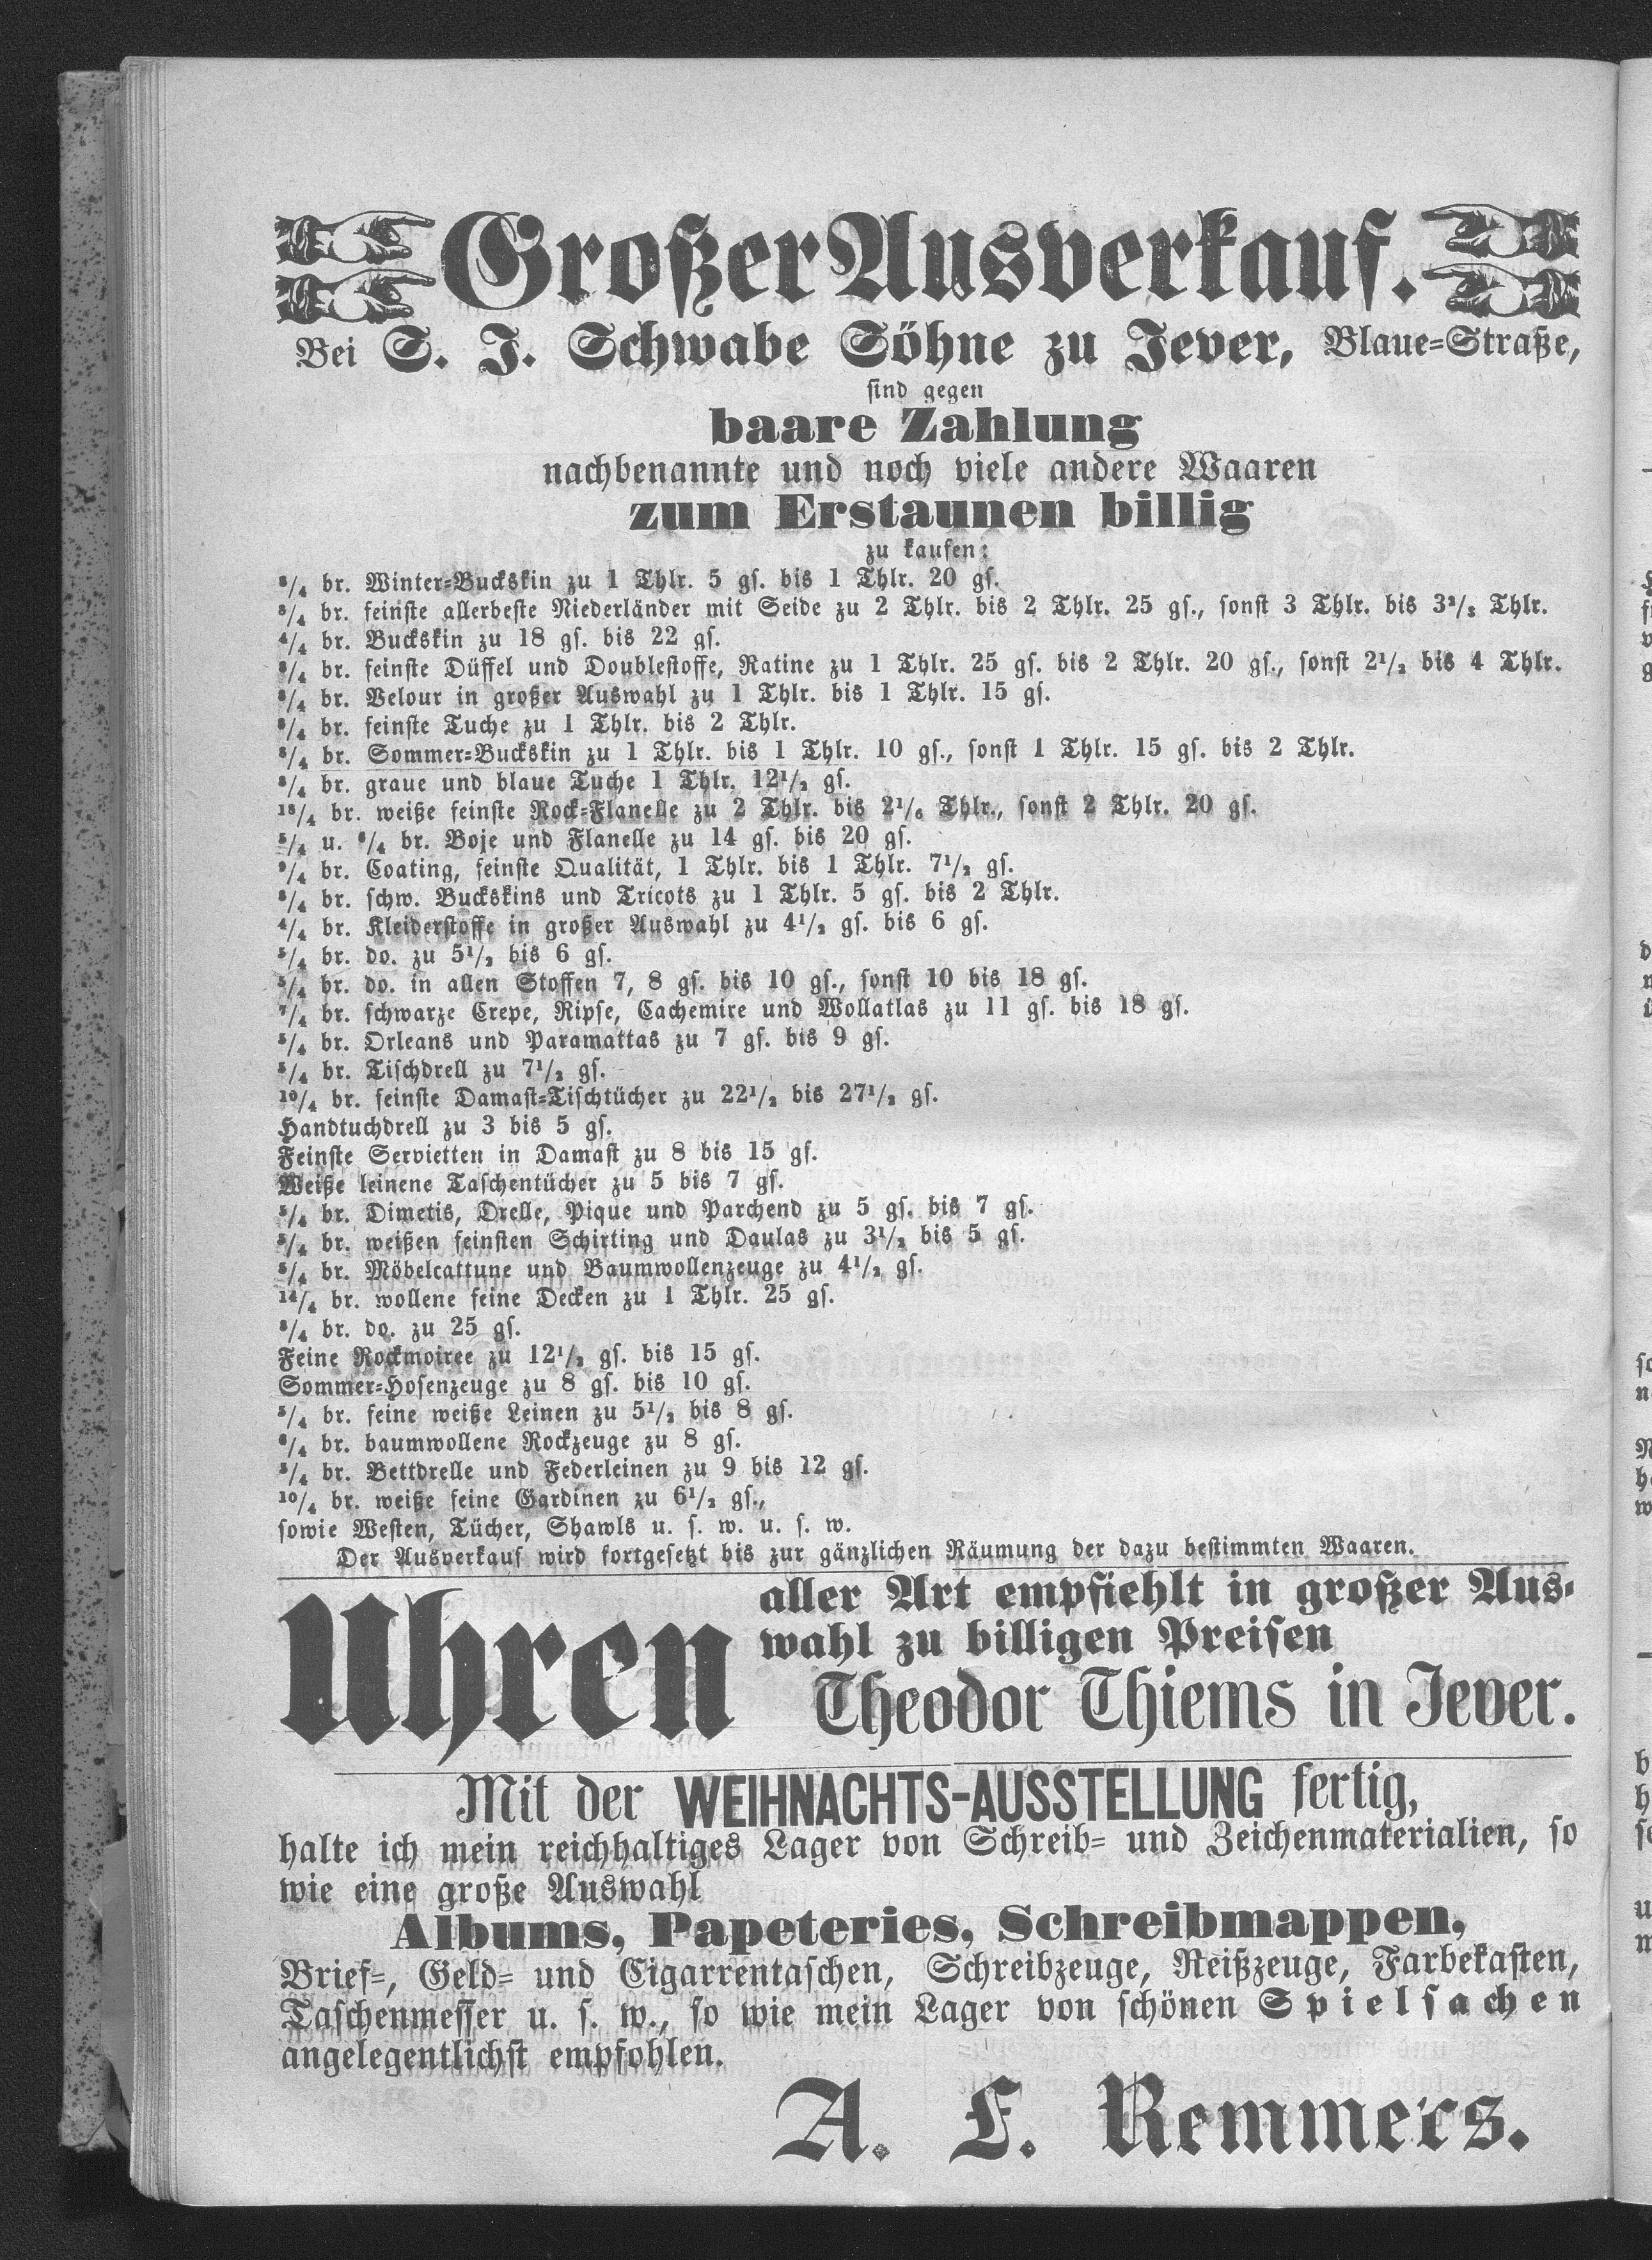 Großer Ausverkauf.
Bei S. J. Schwabe Söhne zu Jever, Blaue-Straße,
sind gegen
baare Zahlung
nachbenannte und noch viele andere Waaren
zum Erstaunen billig
zu kaufen:
8/4 br. Winter-Buckskin zu 1 Thlr. 5 gs. bis 1 Thlr. 20 gs.
8/4 br. feinste allerbeste Niederländer mit Seide zu 2 Thlr. bis 2 Thlr. 25 gs., sonst 3 Thlr. bis 3 2/3 Thlr.
4/4 br. Buckskin zu 18 gs. bis 22 gs.
8/4 br. feinste Düffel und Doublestoffe, Ratine zu 1 Thlr. 25 gs. bis 2 Thlr. 20 gs., sonst 2 1/2 bis 4 Thlr.
8/4 br. Velour in großer Auswahl zu 1 Thlr. bis 1 Thlr. 15 gs.
8/4 br. feinste Tuche zu 1 Thlr. bis 2 Thlr.
8/4 br. Sommer-Buckskin zu 1 Thlr. bis 1 Thlr. 10 gs., sonst 1 Thlr. 15 gs. bis 2 Thlr.
8/4 br. graue und blaue Tuche 1 Thlr. 12 1/2 gs.
18/4 br. weiße feinste Rock-Flanelle zu 2 Thlr. bis 2 1/6 Thlr., sonst 2 Thlr. 20 gs.
5/4 u. 6/4 br. Boje und Flanelle zu 14 gs. bis 20 gs.
9/4 br. Coating, feinste Qualität, 1 Thlr. bis 1 Thlr. 7 1/2 gs.
8/4 br. schw. Buckskins und Tricots zu 1 Thlr. 5 gs. bis 2 Thlr.
4/4 br. Kleiderstoffe in großer Auswahl zu 4 1/2 gs. bis 6 gs.
5/4 br. do. zu 5 1/2 bis 6 gs.
5/4 br. do. in allen Stoffen 7, 8 gs. bis 10 gs., sonst 10 bis 18 gs.
7/4 br. schwarze Crepe, Ripse, Cachemire und Wollatlas zu 11 gs. bis 18 gs.
5/4 br. Orleans und Paramattas zu 7 gs. bis 9 gs.
5/4 br. Tischdrell zu 7 1/2 gs.
10/4 br. feinste Damast-Tischtücher zu 22 1/2 bis 27 1/2 gs.
Handtuchdrell zu 3 bis 5 gs.
Feinste Servietten in Damast zu 8 bis 15 gs.
Weiße leinene Taschentücher zu 5 bis 7 gs.
5/4 br. Dimetis, Drelle, Pique und Parchend zu 5 gs. bis 7 gs.
5/4 br. weißen feinsten Schirting und Daulas zu 3 1/2 bis 5 gs.
5/4 br. Möbelcattune und Baumwollenzeuge zu 4 1/2 gs.
14/4 br. wollene feine Decken zu 1 Thlr. 25 gs.
8/4 br. do. zu 25 gs.
Feine Rockmoiree zu 12 1/2 gs. bis 15 gs.
Sommer-Hosenzeuge zu 8 gs. bis 10 gs.
5/4 br. feine weiße Leinen zu 5 1/2 bis 8 gs.
6/4 br. baumwollene Rockzeuge zu 8 gs.
5/4 br. Bettdrelle und Federleinen zu 9 bis 12 gs.
10/4 br. weiße feine Gardinen zu 6 1/2 gs.,
sowie Westen, Tücher, Shawls u. s. w. u. s. w.
Der Ausverkauf wird fortgesetzt bis zur gänzlichen Räumung der dazu bestimmten Waaren.
Uhren aller Art empfiehlt in großer Aus-
wahl zu billigen Preisen
Theodor Thiems in Jever.
Mit der WEIHNACHTS-AUSSTELLUNG fertig,
halte ich mein reichhaltiges Lager von Schreib- und Zeichenmaterialien, so
wie eine große Auswahl
Albums, Papeteries, Schreibmappen,
Brief-, Geld- und Cigarrentaschen, Schreibzeuge, Reißzeuge, Farbekasten,
Taschenmesser u. s. w., so wie mein Lager von schönen Spielsachen
angelegentlichst empfohlen.
A. F. Remmers.